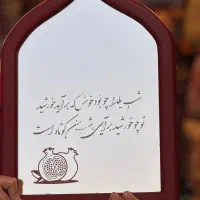 شب یلدا چو بود خوش که برآید خورشید
تو چو خورشید برآیی شب من کوتاه است